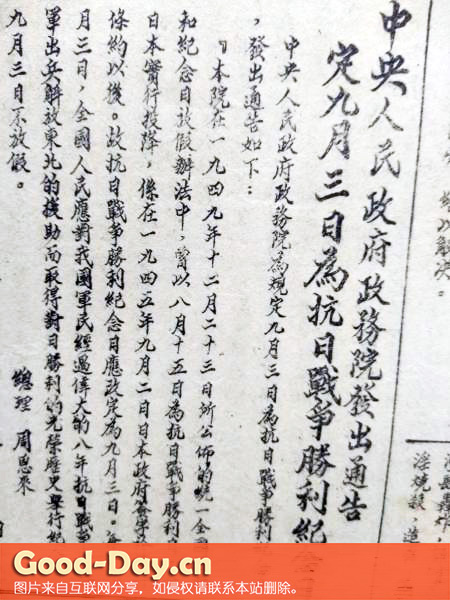 以解決。
淫燒殺，造
中央人民政府政務院發出通告
定九月三日為抗日戰爭勝利紀
中央人民政府政務院為規定九月三日為抗日戰爭勝利
，發出通告如下：
『本院在一九四九年十二月二十三日所公佈的統一全
和紀念日放假辦法中，曾以八月十五日為抗日戰爭勝利
日本實行投降，係在一九四五年九月二日日本政府簽字
條約以後。故抗日戰爭勝利紀念日應改定為九月三日。每
月三日，全國人民應對我國軍民經過偉大的八年抗日戰爭
軍出兵解放東北的援助而取得對日勝利的光榮歷史舉行紀
九月三日不放假。
總理 周恩來
Good-Day.cn
图片来自互联网分享，如侵权请联系本站删除。